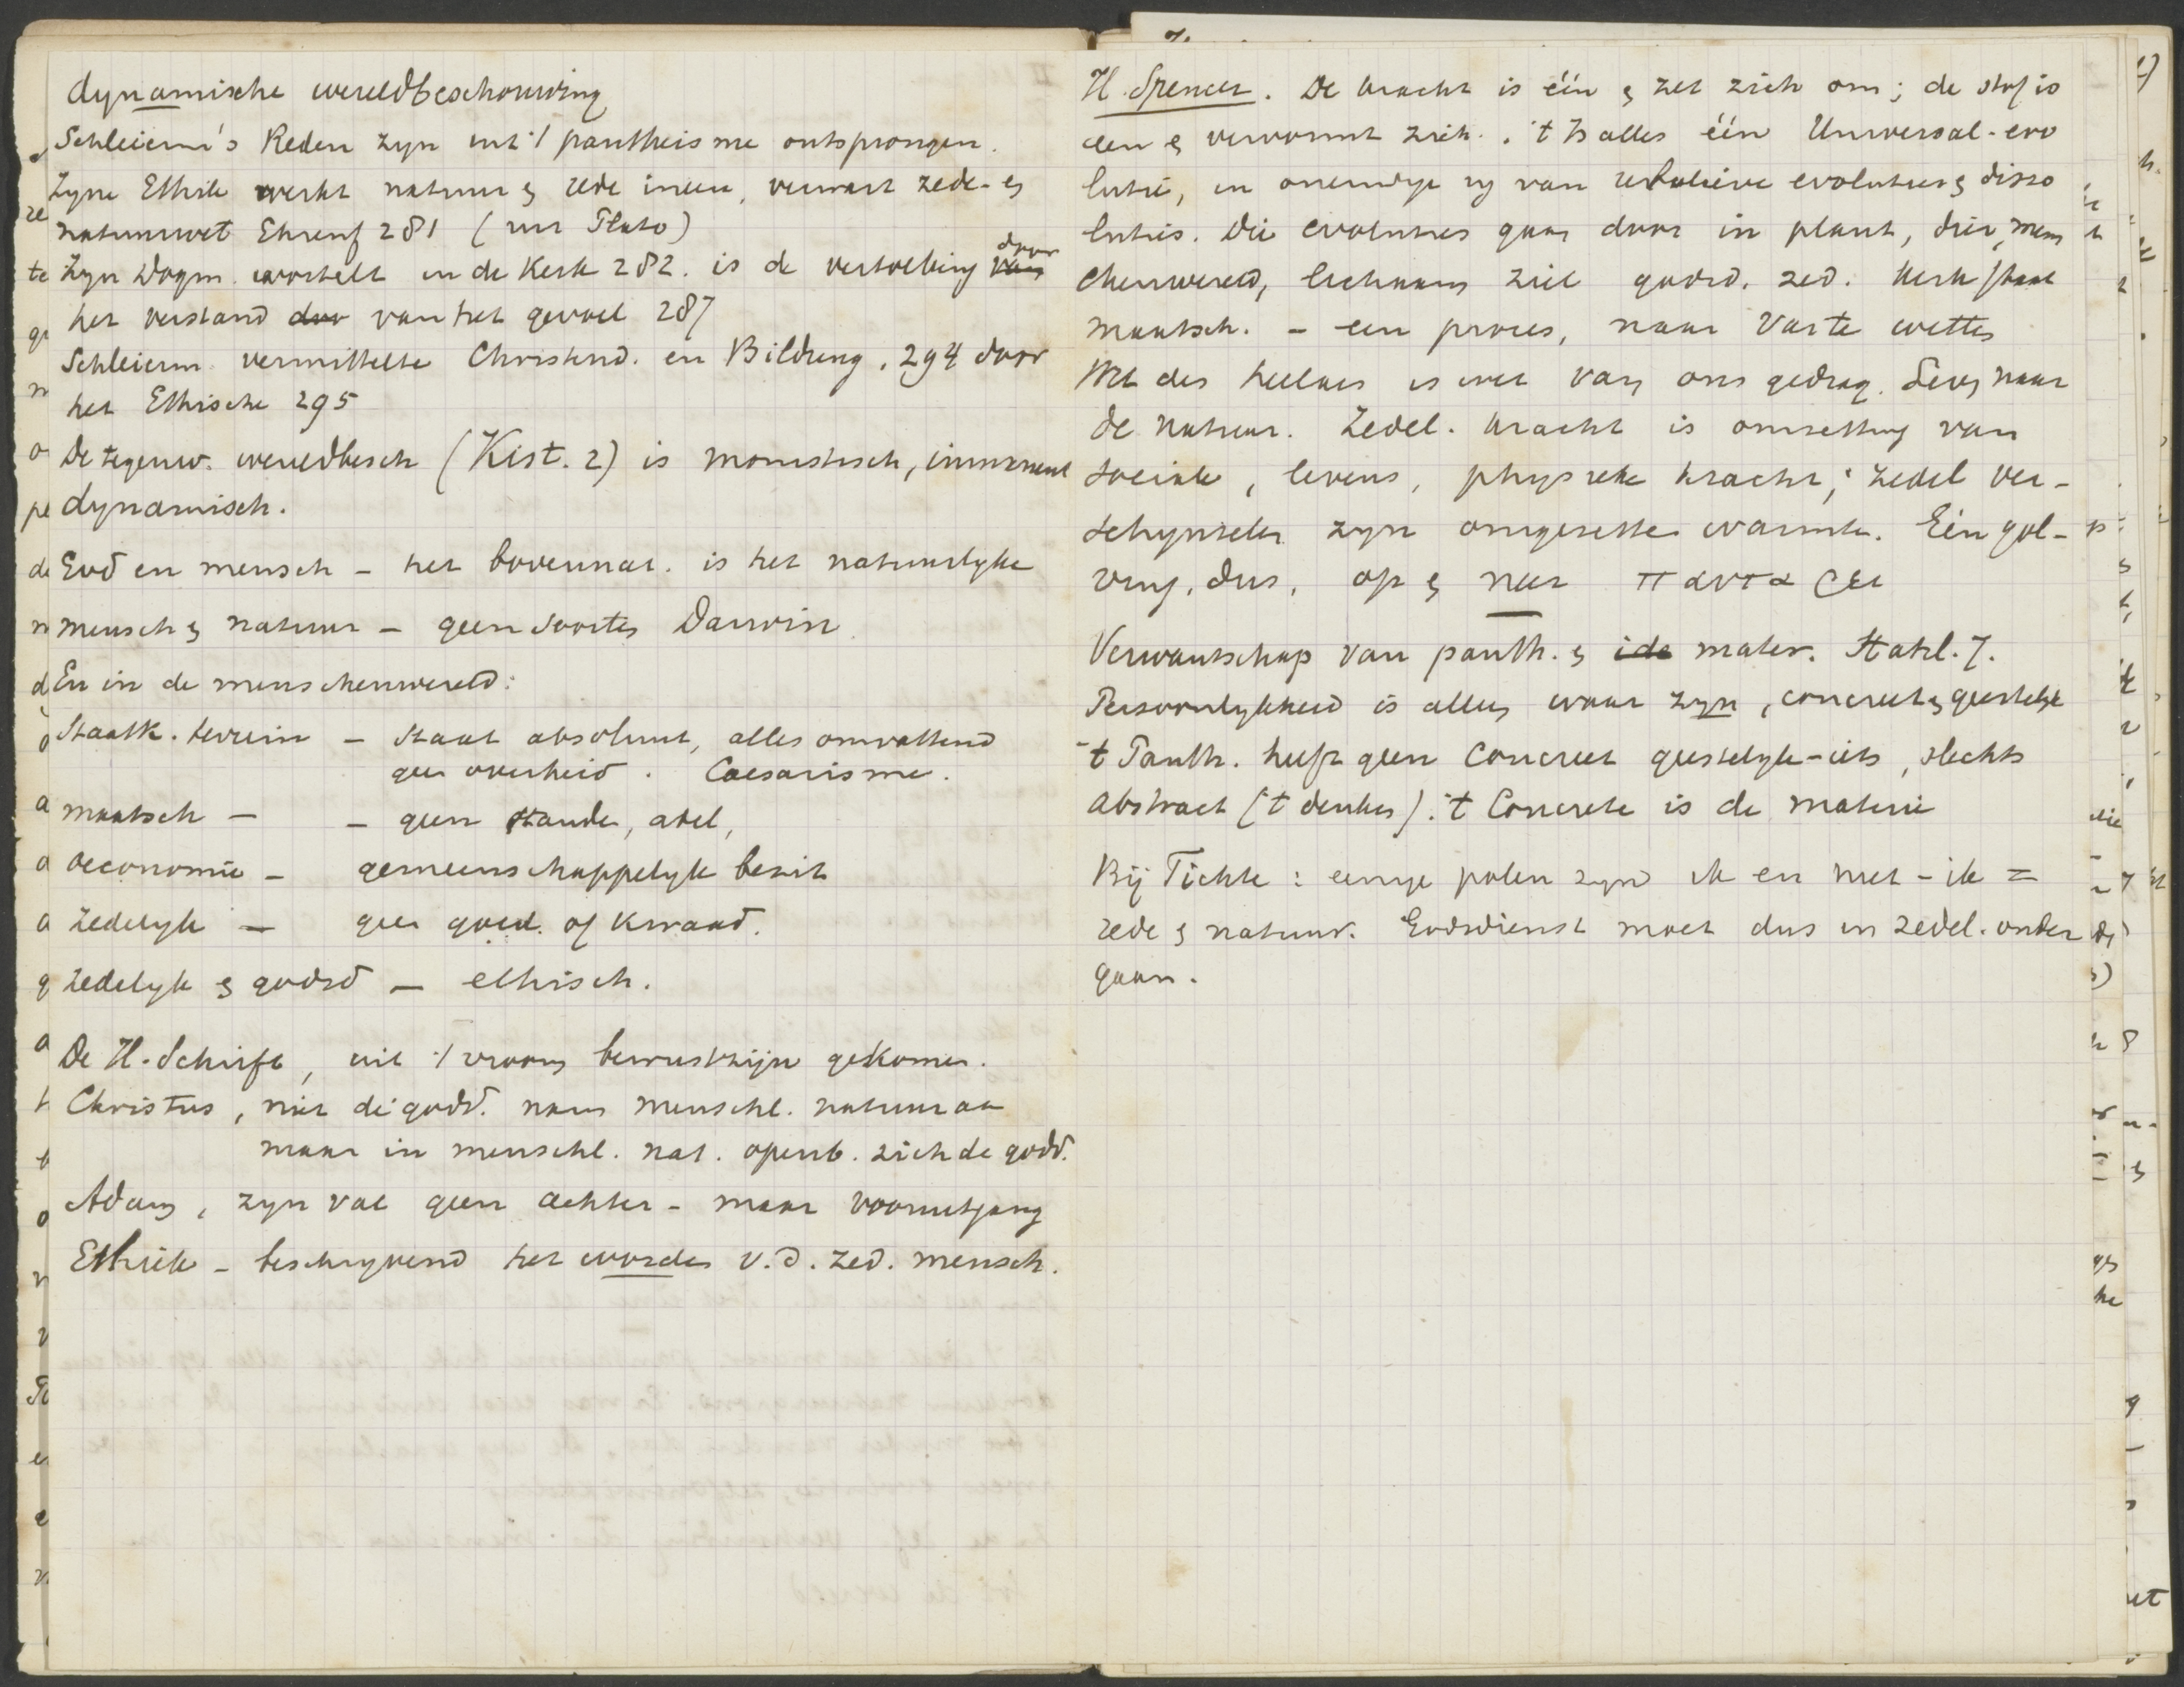 dynamische wereldbeschouwing
Schleierm's Reden zyn uit 't pantheisme ontsprongen.
Zyne Ethik werkt natuur & rede ineen, verwart zede- &
natuurwet Ehrenf 281 (uit Plato)
Zyn Dogm. wortelt in de Kerk 282. is de vertolking door
het verstand van het gevoel 287
Schleierm vermittelte Christend. en Bildung, 294 door
het Ethische 295
De tegenw. wereldbesch (Kist. 2) is monistisch, immanent
dynamisch.
God en mensch – het bovennat. is het natuurlyke
mensch & natuur – geen soorten Darwin
En in de menschenwereld:
Staatk. terrein – Staat absoluut, alles omvattend
geen overheid. Caesarisme.
maatsch – – geen stande, adel,
oeconomie – gemeenschappelyk bezit
zedelyk – geen goed. of kwaad.
zedelyk & godsd – ethisch.
De H. Schrift, uit 't vroom bewustzijn gekomen.
Christus, niet de godd. nam menschl. natuur aan
maar in menschl. nat. openb. zich de godd.
Adam, zyn val geen achter- maar vooruitgang
Ethiek – beschryvend het worden v. d. zed. mensch.
H. Spencer. De kracht is één & zet zich om; de stof is
een & vervormt zich. 't Is alles één Universal-evo
lutie, en oneindige ry van relatieve evoluties & disso
luties. Die evoluties gaan door in plant, dier, mens
chenwereld, lichaam ziel godsd. zed. kerk staat
maatsch. – een proces, naar vaste wetten
Wet des heelals is wet van ons gedrag. Leven naar
de natuur. Zedel. kracht is omzetting van
sociale, levens, physieke kracht; zedel ver-
schynselen zyn omgezette warmte. Eén gol-
ving, dus, op & neer παντα ρει
Verwantschap van panth. & mater. Stahl. 7.
Persoonlykheid is alleen waar zyn, concreet & geestelyk
't Panth. heeft geen concreet geestelyk-iets, slechts
abstract ('t denken). 't Concrete is de materie
Bij Fichte: eenige polen zyn ik en niet-ik =
rede & natuur. Godsdienst moet dus in zedel. onder
gaan.